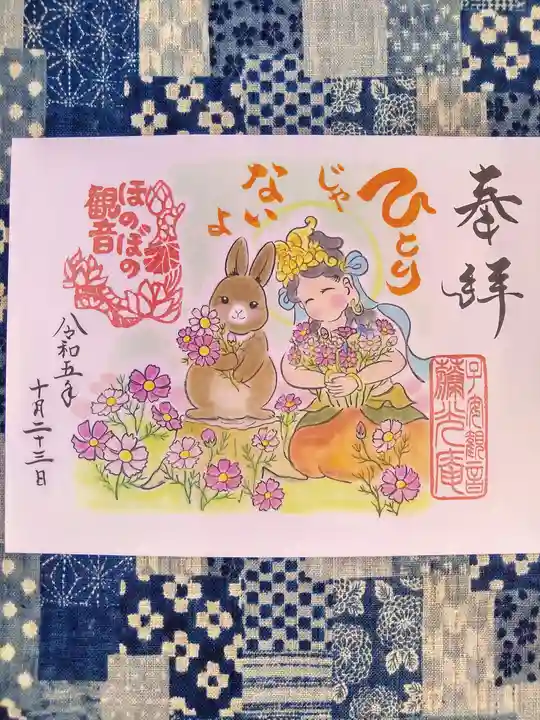 奉拝
ひとり
じゃ
ない
よ
ほのぼの
観音
子安観音
彌光庵
令和五年
十月二十三日